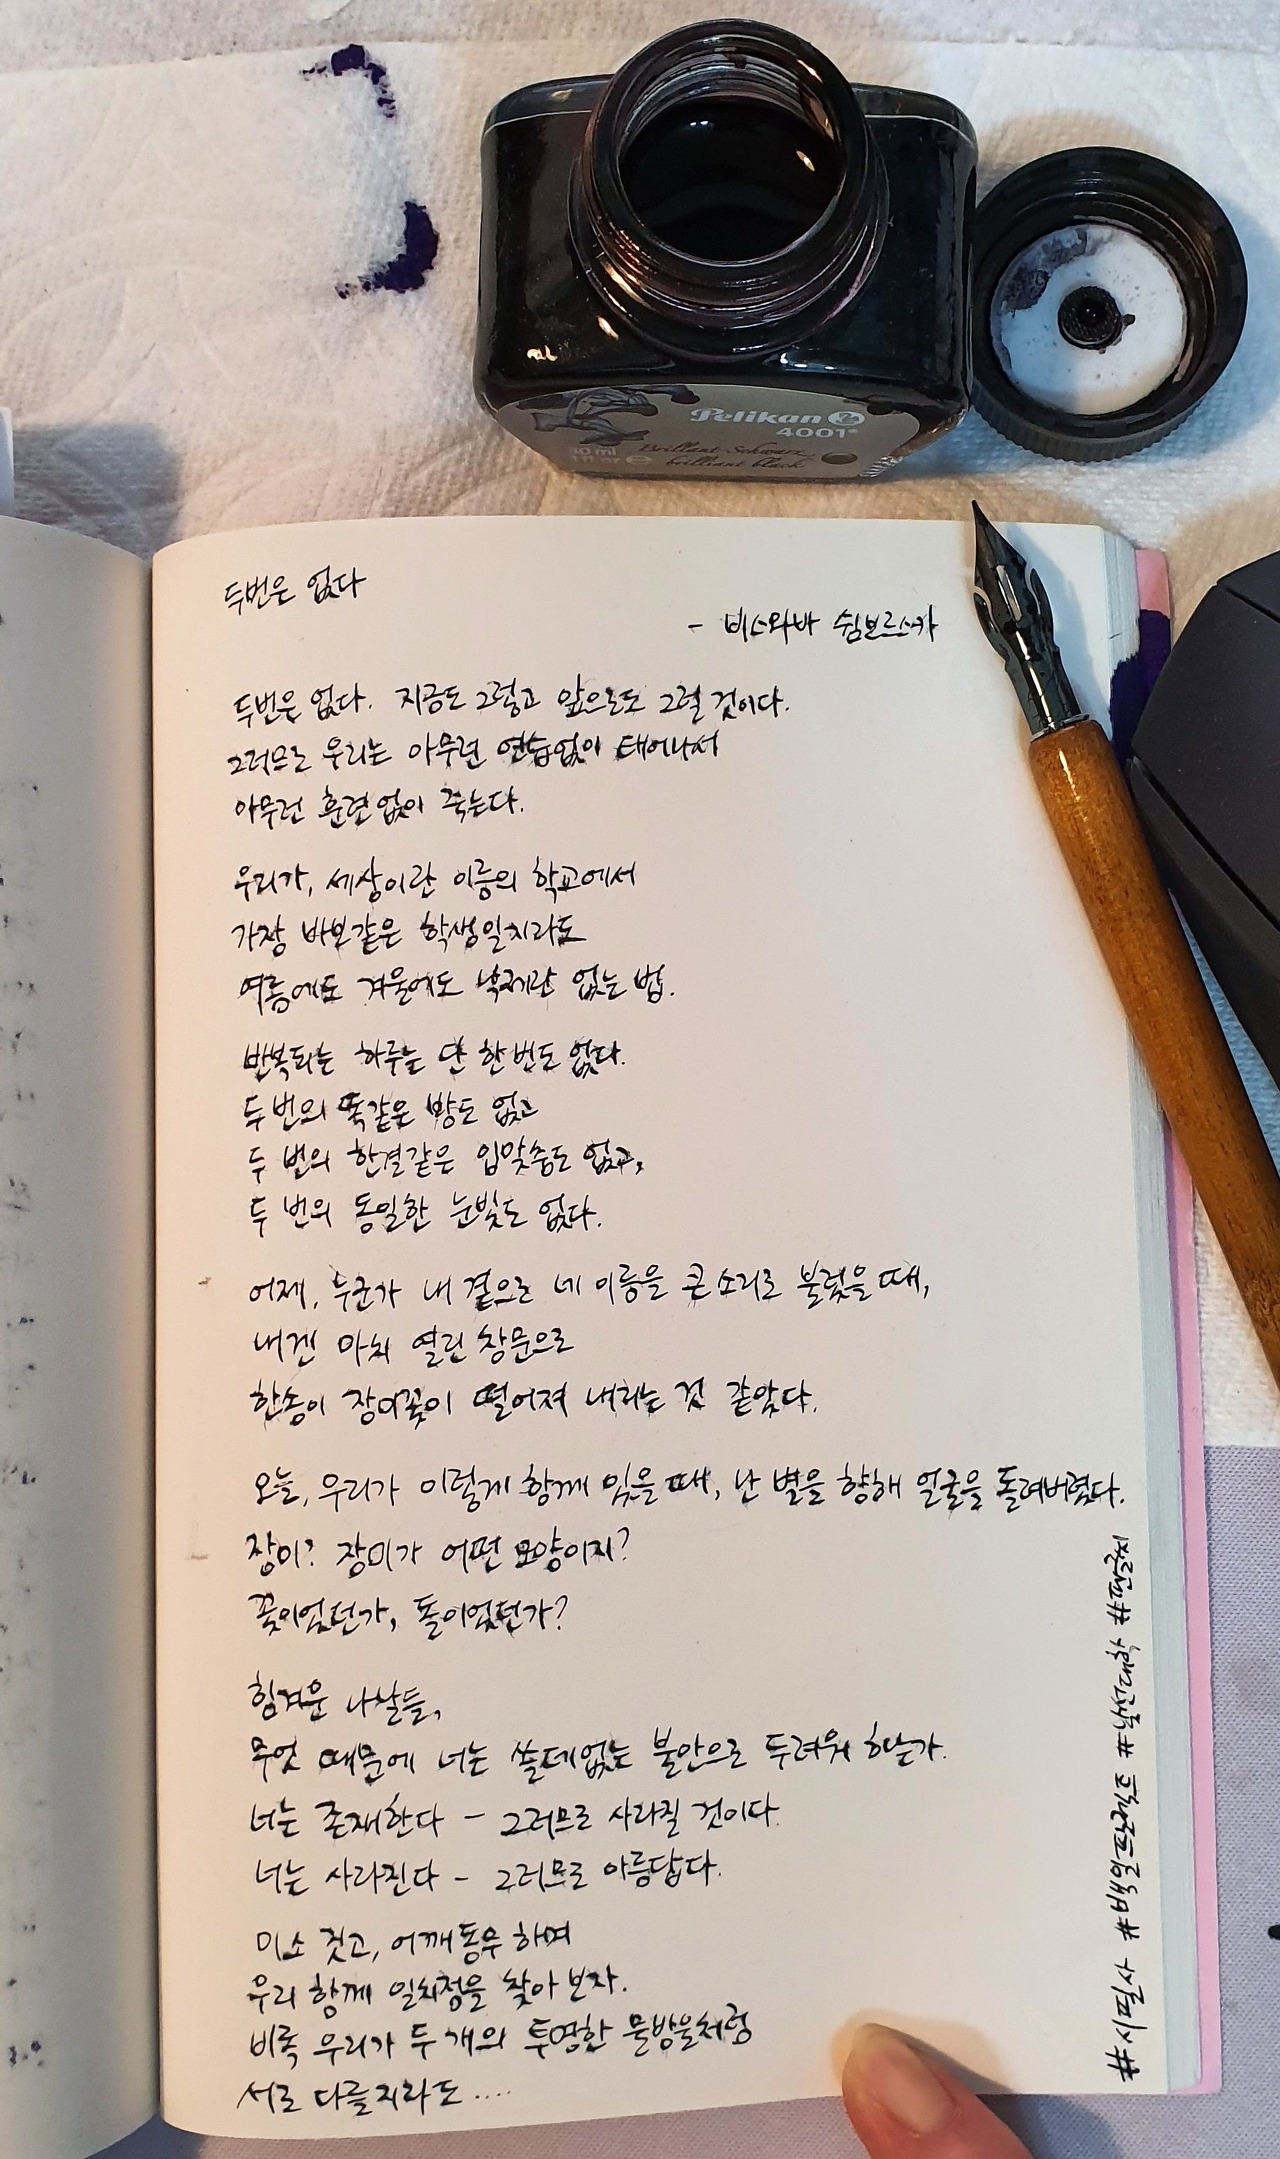 Pelikan
4001®
Brillant-Schwarz
brilliant black
두번은 없다
- 비스와바 쉼보르스카
두번은 없다. 지금도 그렇고 앞으로도 그럴 것이다.
그러므로 우리는 아무런 연습없이 태어나서
아무런 훈련없이 죽는다.
우리가, 세상이란 이름의 학교에서
가장 바보같은 학생일지라도
여름에도 겨울에도 낙제란 없는 법.
반복되는 하루는 단 한번도 없다.
두 번의 똑같은 밤도 없고
두 번의 한결같은 입맞춤도 없고,
두 번의 동일한 눈빛도 없다.
어제, 누군가 내 곁으로 네 이름을 큰 소리로 불렀을 때,
내겐 마치 열린 창문으로
한송이 장미꽃이 떨어져 내리는 것 같았다.
오늘, 우리가 이렇게 함께 있을 때, 난 벽을 향해 얼굴을 돌려버렸다.
장미? 장미가 어떤 모양이지?
꽃이었던가, 돌이었던가?
힘겨운 나날들,
무엇 때문에 너는 쓸데없는 불안으로 두려워 하는가.
너는 존재한다 - 그러므로 사라질 것이다
너는 사라진다 - 그러므로 아름답다.
미소 짓고, 어깨동무 하며
우리 함께 일치점을 찾아 보자.
비록 우리가 두 개의 투명한 물방울처럼
서로 다를지라도 ....